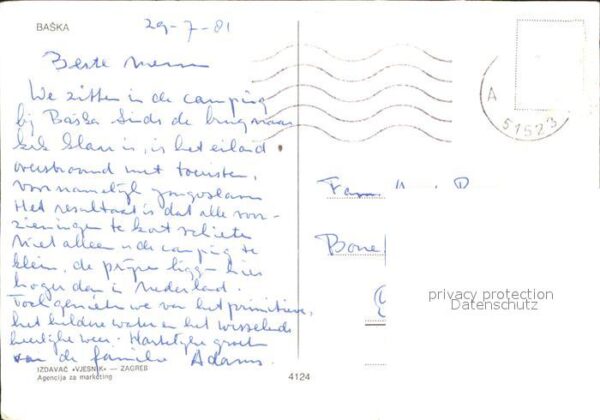 BAŠKA
29-7-81
Beste mensen
We zitten in de camping
bij Baška Sinds de brug naar
Krk klaar is, is het eiland
overstroomd met toeristen,
voornamelijk yougoslaven
Het resultaat is dat alle voor-
zieningen te kort schieten
Niet alleen is de camping te
klein, de prijzen liggen hier
hoger dan in Nederland.
Toch genieten we van het primitieve,
het heldere water en het wisselende
heerlijke weer. Hartelijke groeten
van de familie Adams.
IZDAVAČ »VJESNIK« — ZAGREB
Agencija za marketing
4124
A
51523
Fam
Bone
privacy protection
Datenschutz